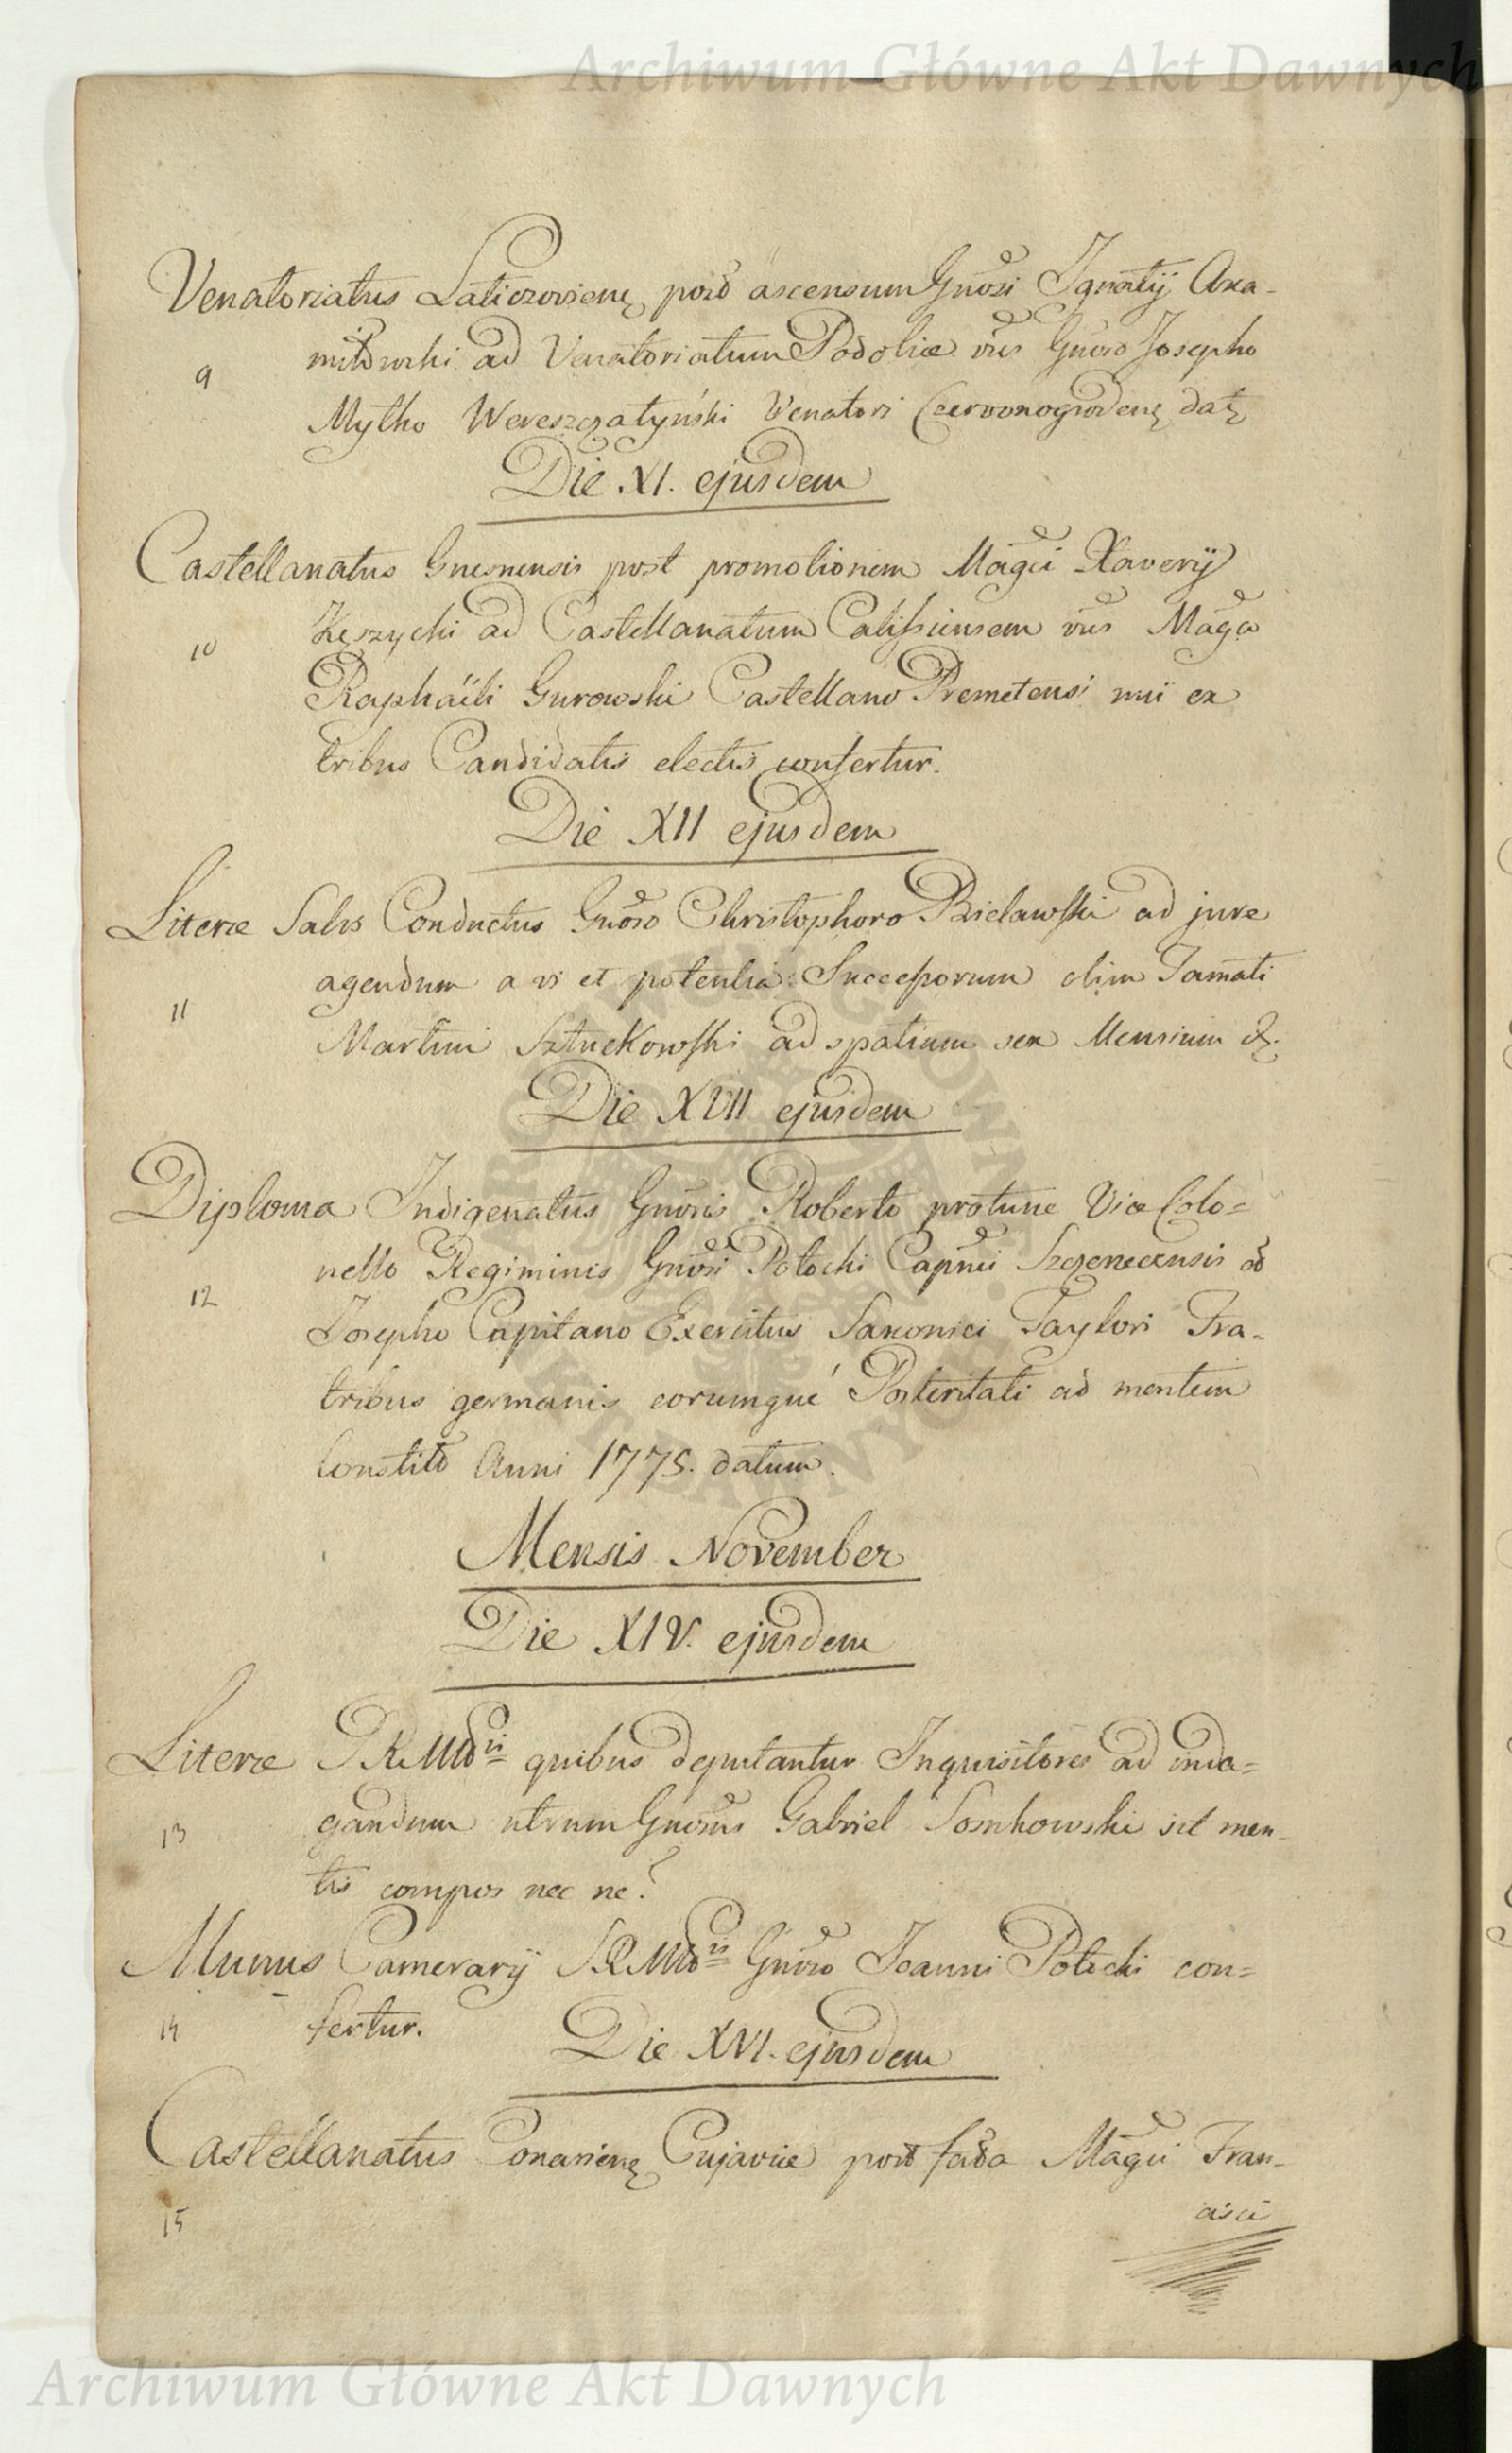 Archiwum Główne Akt Dawnych
Venatoriatus Laticzoviens, post ascensum Gnosi Ignatij Axa-
mitowski ad Venatoriatum Podoliæ vrs Gnoso Josepho
9
Mytko Wereszczatyński Venatori Czerwonogrodens datę
Die XI. ejusdem
Castellanatus Gnesnensis post promotionem Magci Xaverij
Kęszycki ad Castellanatum Calissiensem vrs Magco
10
Raphaëli Gurowski Castellano Premetensi uni ex
tribus Candidatis electis confertur.
Die XII ejusdem
Literæ Salvs Conductus Gnoso Christophoro Bielawski ad jure
agendum a vi et potentia Successorum olim Famati
11
Martini Sztuckowski ad spatium sex Mensium &.
Die XVII ejusdem
Diploma Indigenatus Gnosis Roberto protunc Vice Colo=
nello Regiminis Gnosi Potocki Capnei Szczerzecensis ad
12
Josepho Capitano Exercitus Saxonici Taylori Fra-
tribus germanis eorumqué Posteritati ad mentem
Constito Anni 1775. datum.
Mensis November
Die XIV. ejusdem
Literæ SRMttis quibus deputantur Inquisitores ad inda=
gandum utrum Gnosus Gabriel Sosnkowski sit men-
13
tis compos nec ne?
Munus Camerarij SRMttis Gnoso Joanni Potocki con=
14
fertur.
Die XVI. ejusdem
Castellanatus Conariens Cujaviæ post fata Magci Fran-
15
cisci
Archiwum Główne Akt Dawnych